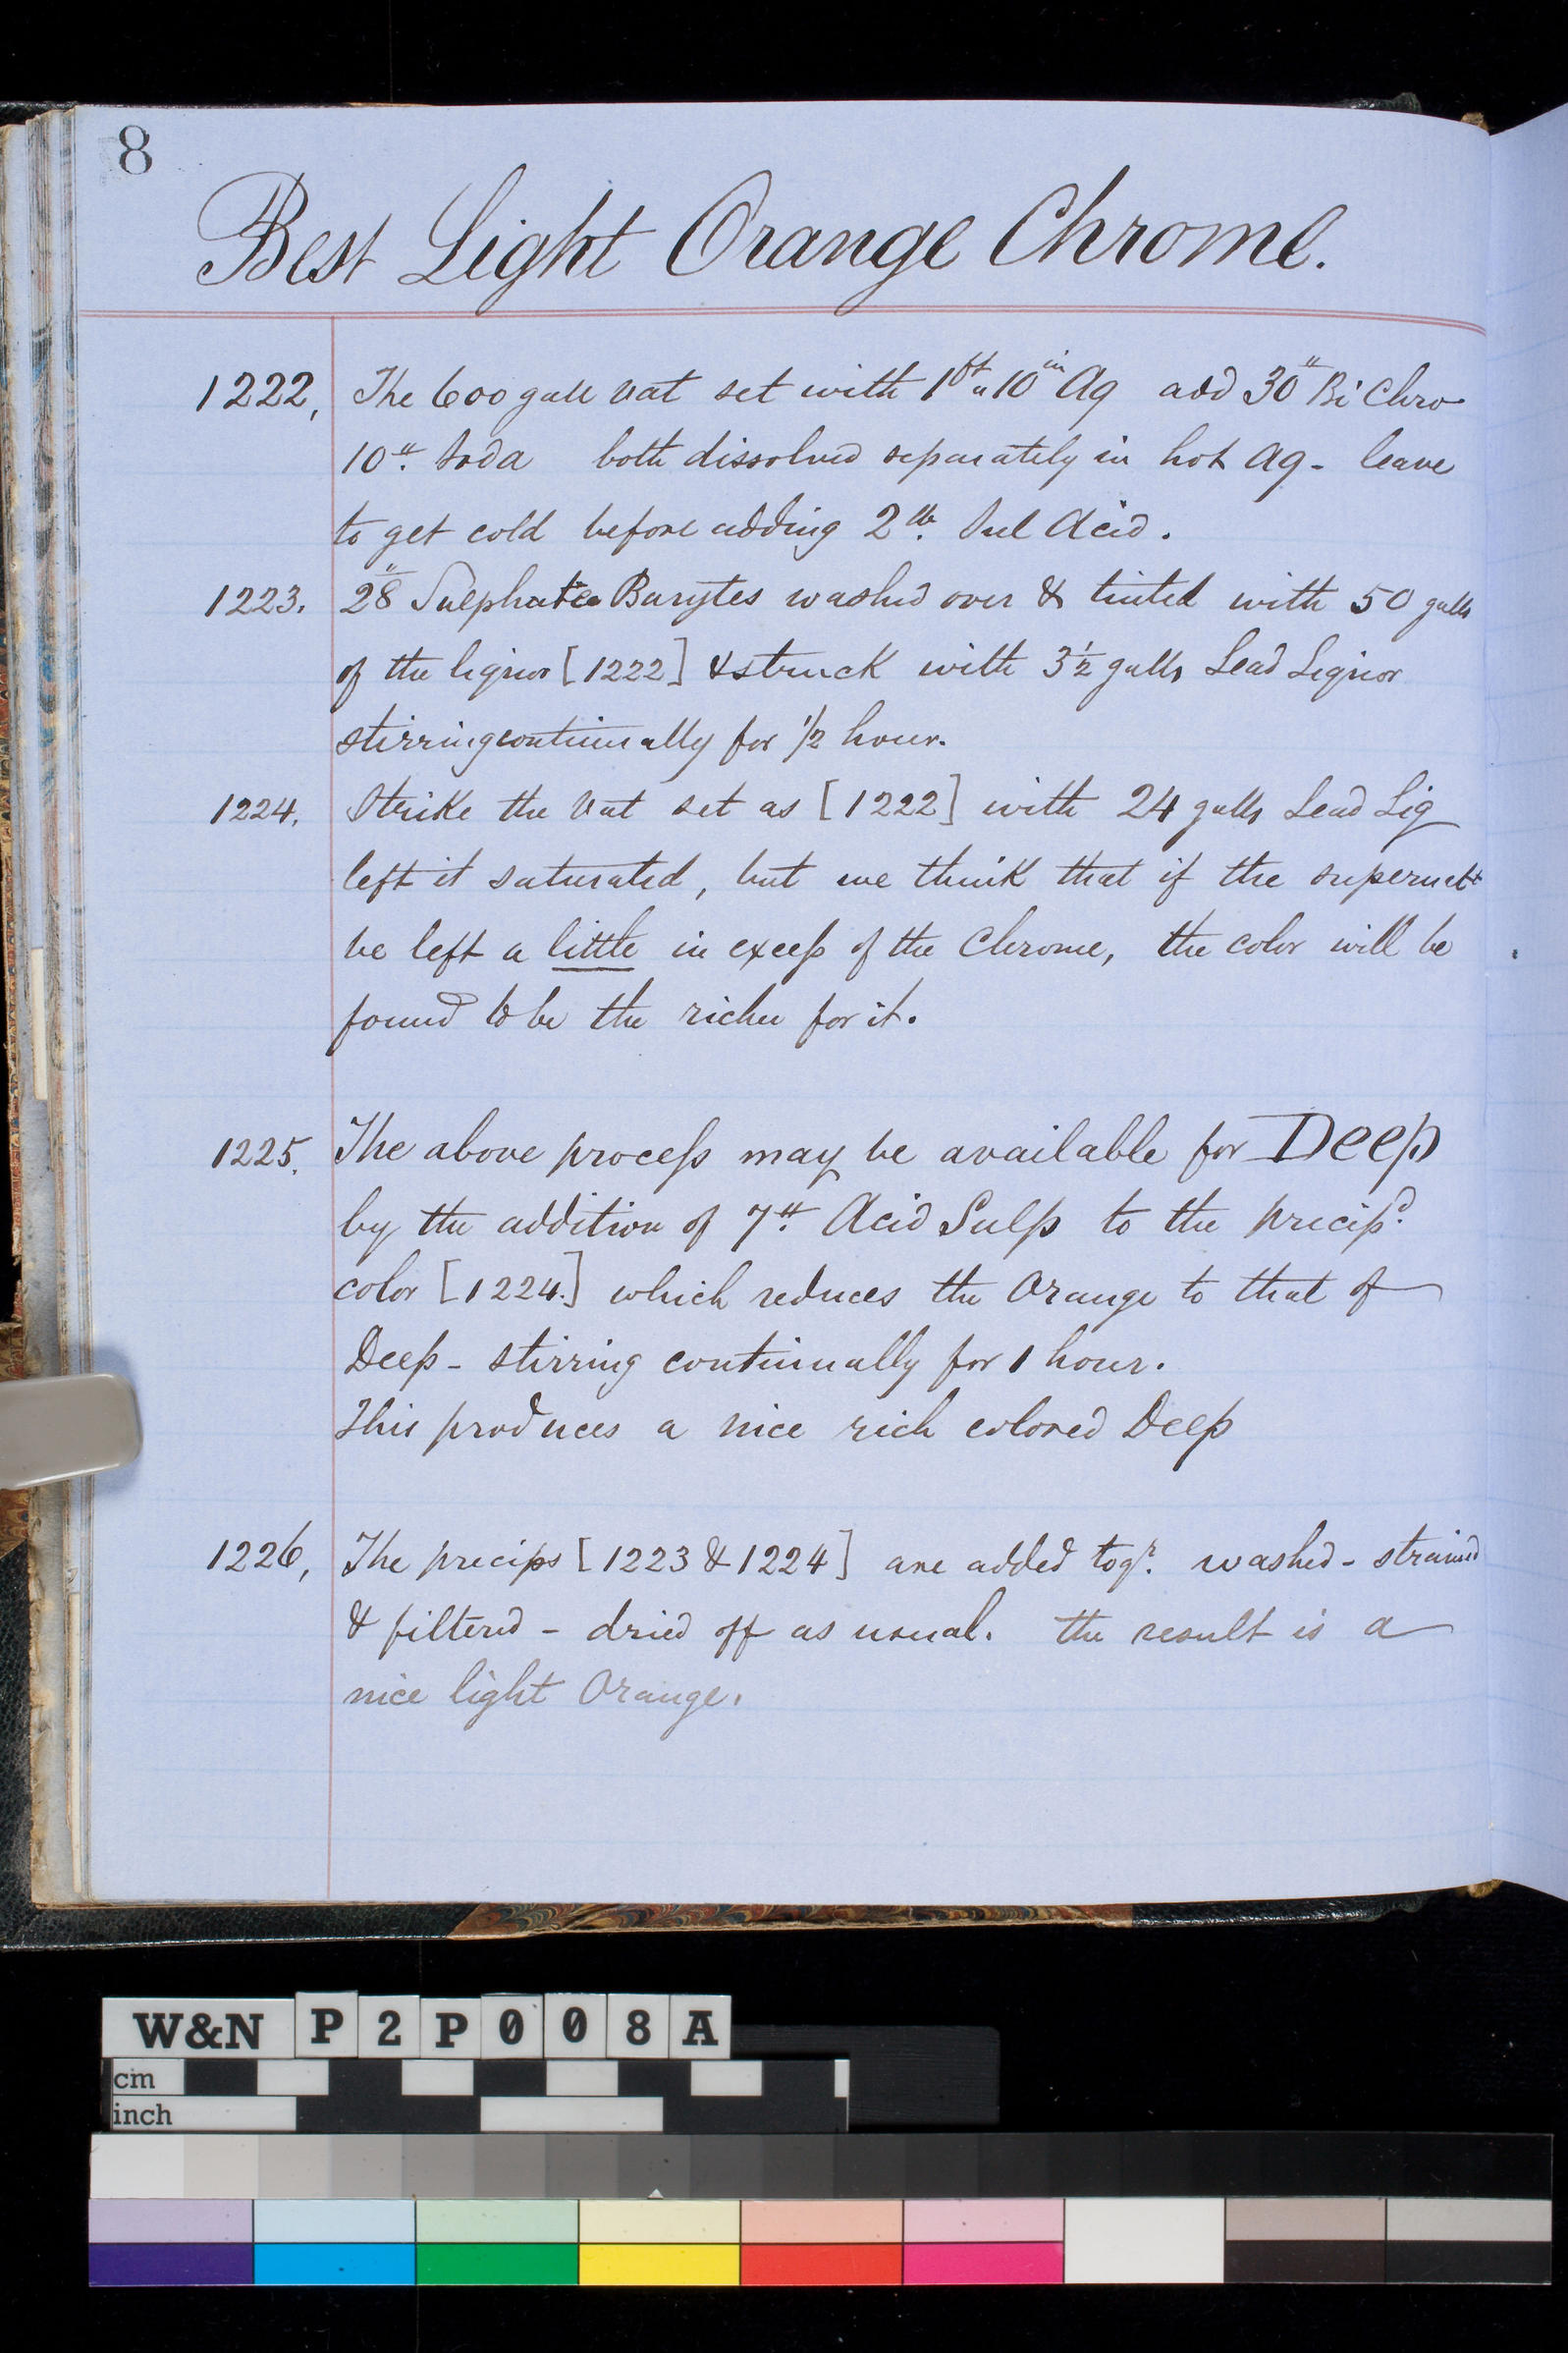 8
Best Light Orange Chrome.
1222, The 600 gall vat set with 1ft " 10in Aq add 30" Bi Chro
10". Soda both dissolved separately in hot aq - leave
to get cold before adding 2lb. Sul Acid.
1223. 28" Sulphate Barytes washed over & tinted with 50 galls
of the liquor [1222] & struck with 3 1/2 galls Lead Liquor
stirring continually for 1/2 hour.
1224. Strike the vat set as [1222] with 24 galls Lead Liq
left it saturated, but we think that if the supernatt
be left a little in excess of the Chrome, the color will be
found to be the richer for it.
1225. The above process may be available for Deep
by the addition of 7". Acid Sulp to the precipd.
color [1224.] which reduces the Orange to that of
Deep - stirring continually for 1 hour.
This produces a nice rich colored Deep
1226, The precips [1223 & 1224] are added togr. washed - strained
& filtered - dried off as usual. the result is a
nice light Orange.
W&N P2P008A
cm
inch